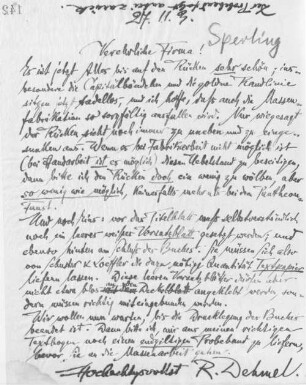 Verehrliche Firma!
Sperling
Es ist jetzt Alles bis auf den Rücken sehr schön; ins-
besondere die Capitalbändchen und die goldne Randlinie
sitzen jetzt tadellos, und ich hoffe, daß auch die Massen-
fabrikation so sorgfältig ausfallen wird. Nur, wie gesagt
der Rücken sieht noch immer zu uneben und zu einge-
sunken aus. Wenn es bei Fabrikarbeit nicht möglich ist
(bei Handarbeit ist es möglich) diesen Uebelstand zu beseitigen,
dann bitte ich den Rücken doch ein wenig zu wölben, aber
so wenig wie möglich, keinesfalls mehr als bei den Pantheon
Und noch eins: vor das Titelblatt muß selbstverständlich
noch ein leeres weißes Vorsatzblatt gesetzt werden, und
ebenso hinten am Schluß des Buches. Sie müssen sich also
von Schuster & Loeffler die dazu nötige Quantität Textpapier
liefern lassen. Diese leeren Vorsatzblätter dürfen aber
nicht etwa blos ans Deckelblatt angeklebt werden, son
dern müssen richtig miteingebunden werden.
Wir wollen nun warten, bis die Drucklegung des Buches
beendet ist. Dann bitte ich, mir aus meinen richtigen
Textbogen noch einen endgiltigen Probeband zu liefern,
bevor Sie an die Massenarbeit gehen.
Hochachtungsvollst R. Dehmel.